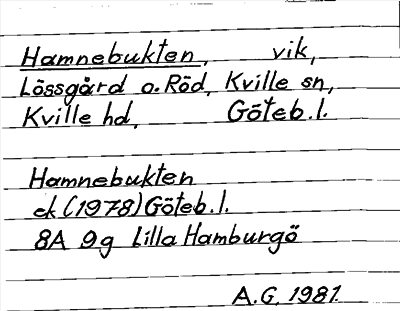 Hamnebukten, vik,
Lössgård o. Röd, Kville sn,
Kville hd, Göteb. l.
Hamnebukten
ek (1978) Göteb. l.
8A 9g Lilla Hamburgö
A.G. 1981.